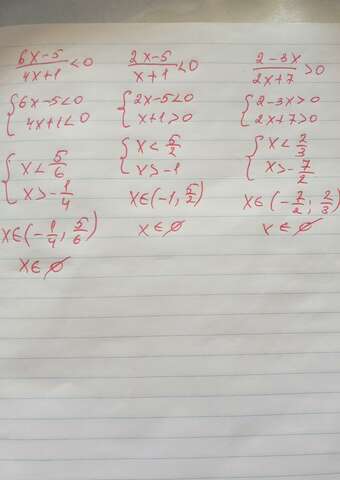 6x-5/4x+1 <0
{6x-5<0
4x+1<0
{x<5/6
x>-1/4
x∈(-1/4; 5/6)
x∈∅
2x-5/x+1 <0
{2x-5<0
x+1>0
{x<5/2
x>-1
x∈(-1, 5/2)
x∈∅
2-3x/2x+7 >0
{2-3x>0
2x+7>0
{x<2/3
x>-7/2
x∈(-7/2; 2/3)
x∈∅